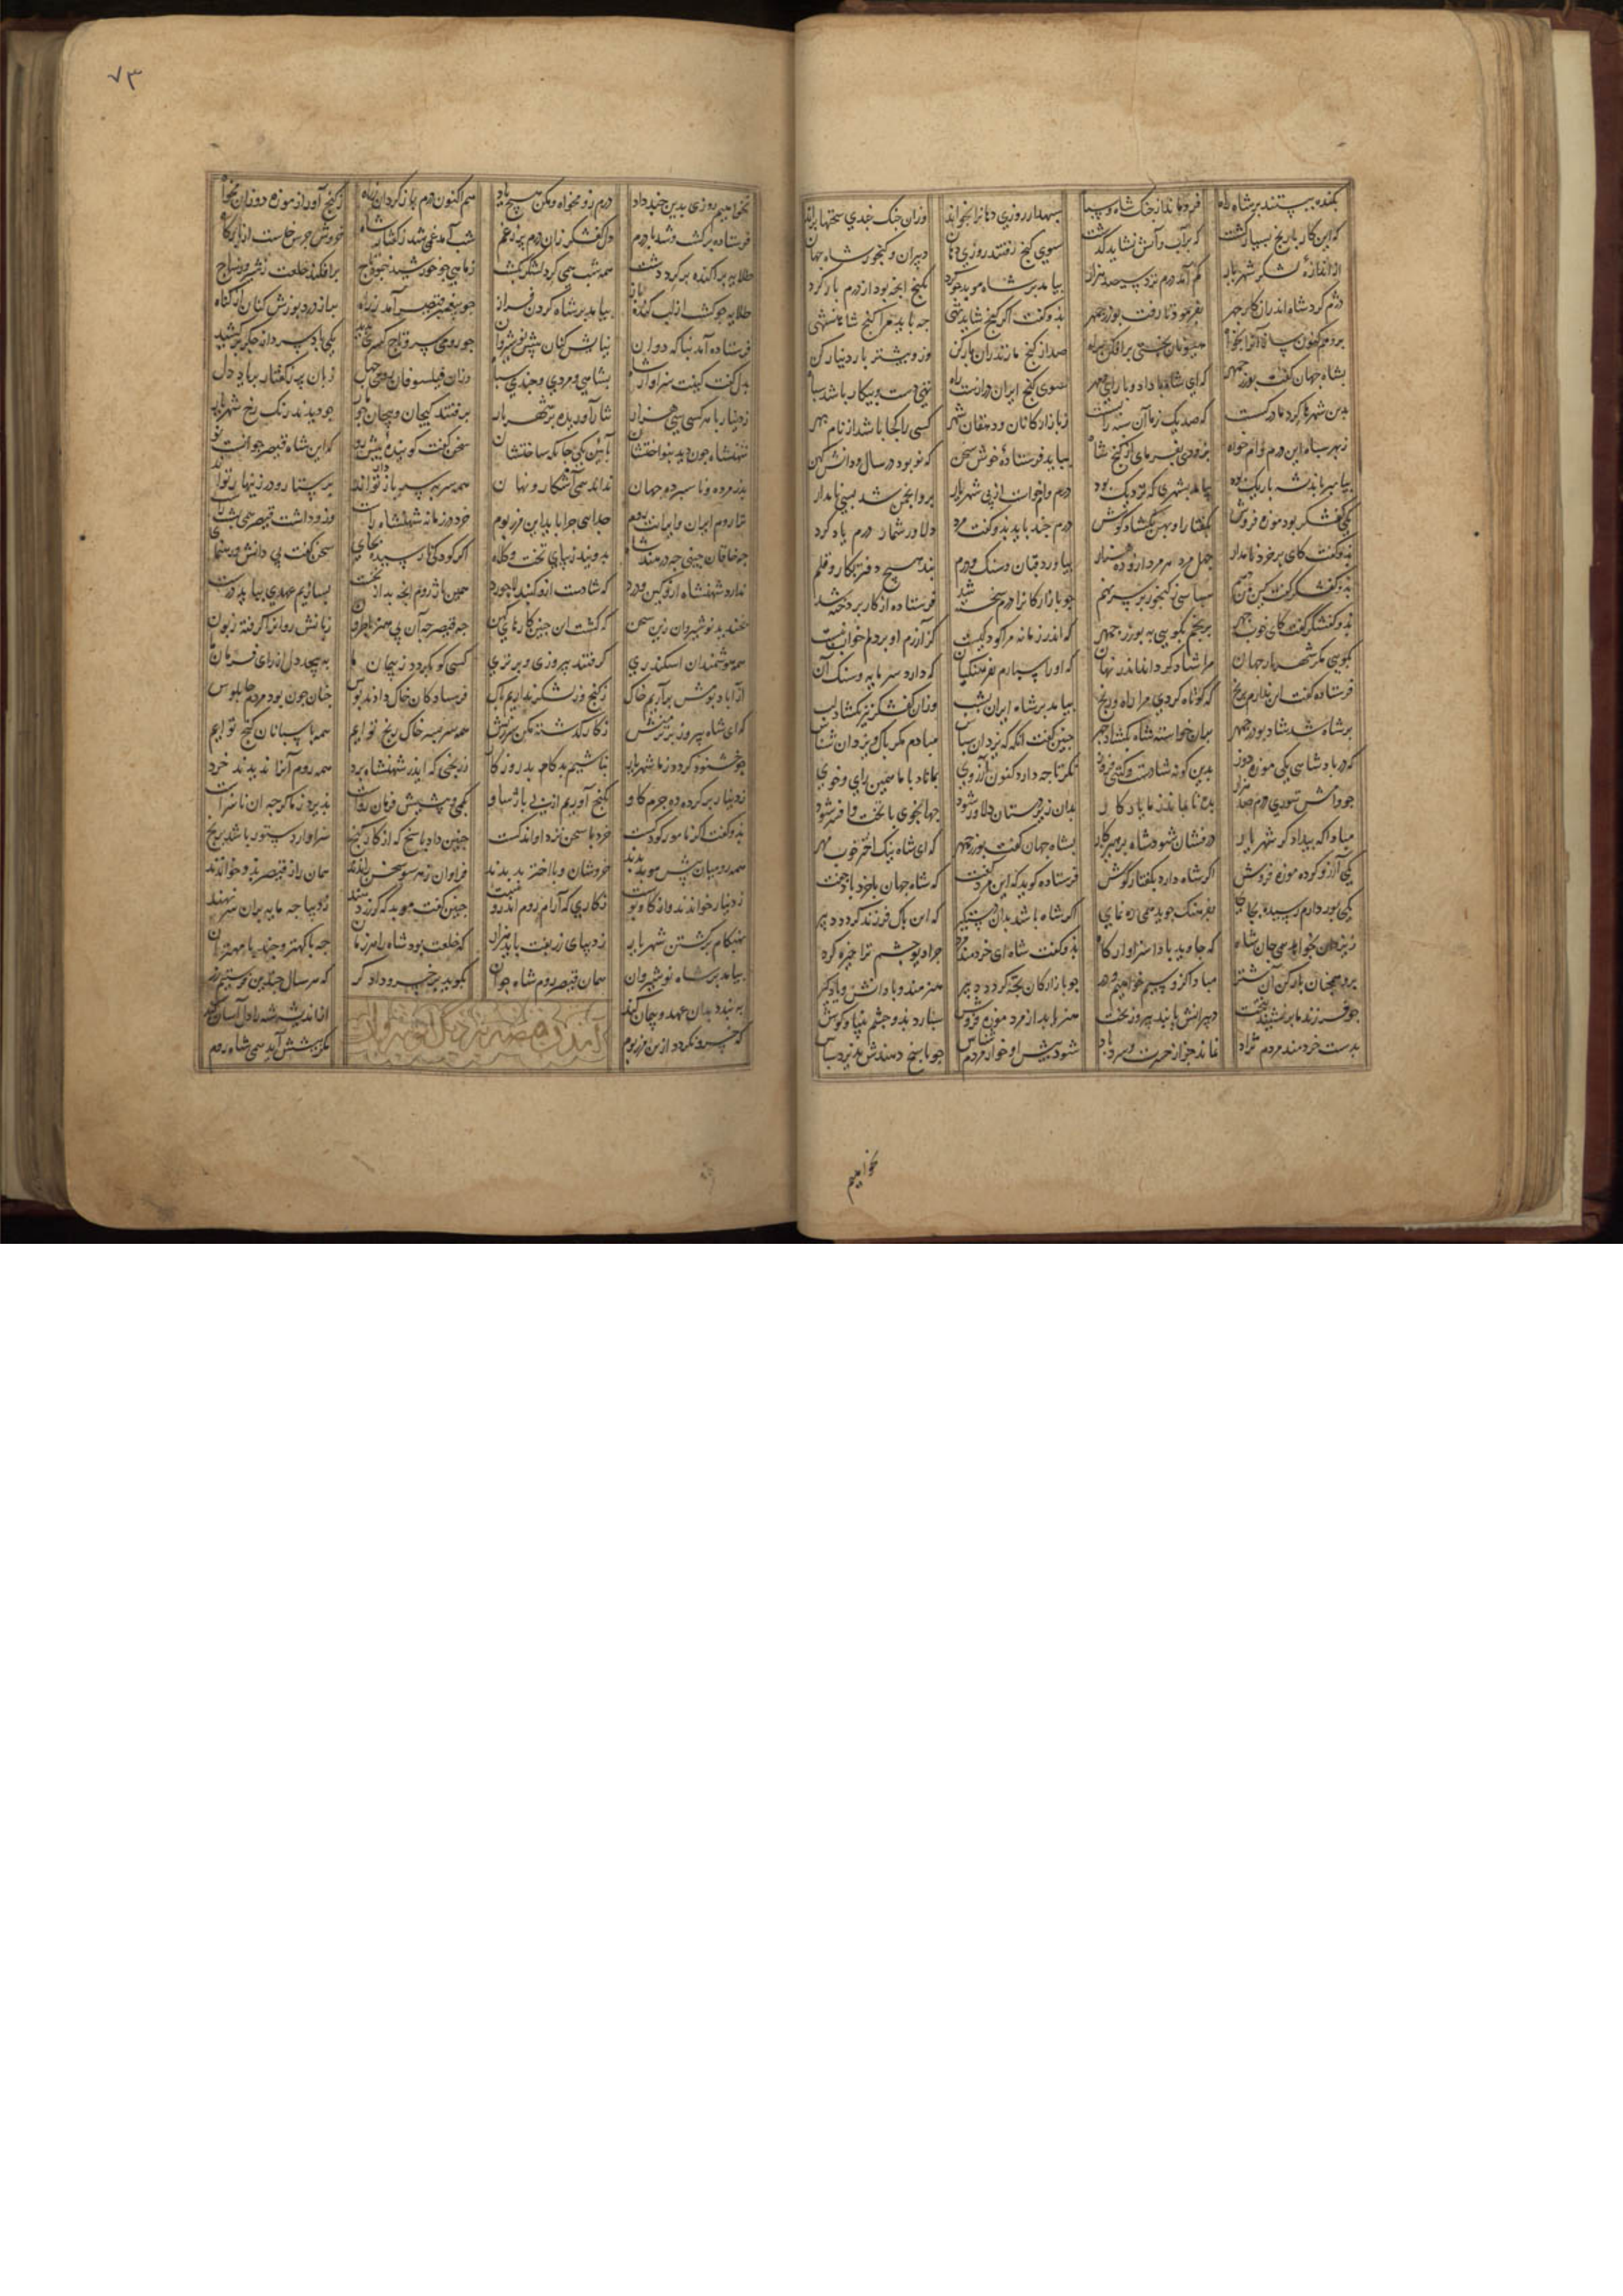 بکندند بیستند بر شاه راه فرو ماند از جنک شاه و سپاه سپهدار روزی دهانرا بخواند وزان جنک چندی سخنها براند
که این کار با رنج بسیار کشت که بر آب و آتش نشاید کذشت سوی کنج رفتند روزی دهان دبیران و کنجور شاه جهان
از اندازهٔ لشکر شهریار کم آمد درم نزد سیصد هزار بیامد بر شاه موبد چو کرد بکنج آنچه بود از درم یاد کرد
دژم کرد شاه اندر آن کار چهر بفرمود تا رفت بوزرجمهر بذو کفت اکر کنج شاید تهی چه باید مرا کنج شاهنشهی
برو هم کنون ساروانرا بخواه هیونان بختی برافکن براه صد از کنج مازندران بارکن وزو بیشتر بار دینار کن
بشاه جهان کفت بوزرجمهر که ای شاه با داد و با رای و مهر سوی کنج ایران درازست راه تهی دست و بیکار باشد سپاه
بدین شهرها کرد ما در کست که صد یک ز ما آن سپه را بست ز بازارکانان و دهقان شهر کسی را کجا باشد از نام بهر
ز بهر سپاه این درم وام خواه بزودی بفرمای از کنج شاه بیاید فرستادهٔ خوش سخن که نو بود در سال و دانش کهن
پیامبر باندیشه باریک بود بیامد بشهری که نزدیک بود درم وام خواست از پی شهریار برو انجمن شد بسی نامدار
یکی کفشکر بود موزه فروش بکفتار او پهن بکشاد کوش درم چند باید بدو کفت مرد دلاور شمار درم یاد کرد
بذو کفت کای پر خرد نامدار چهل مر درم هر درم ده هزار بیاورد قبان و سنک و درم نبد هیچ دفتر بکار و قلم
بدو کفشکر کفت کین من دهم سپاسی ز کنجور بر سر نهم چو بازارکانرا درم سخته شد فرستاده از کار پردخته شد
بدو کفشکر کفت کای خوب چهر برنجی بکویی به بوزرجمهر که اندر زمانه مرا کودکیست که آزرم او بر دلم خوار نیست
بکویی مکر شهریار جهان مرا شاد کرداند اندر نهان که او را سپارم بفرهنکیان که دارد سر مایه و سنک آن
فرستاده کفت این ندارم برنج که کوتاه کردی مرا راه و رنج بیامد بر شاه ایران بشب وزان کفشکر نیز بکشاد لب
بر شاه شد شاد بوزرجمهر بران خواسته شاه بکشاد چهر چنین کفت آنکه که یزدان سپاس مبادم مکر پاک و یزدان شناس
که در پادشاهی یکی موزه دوز بدین کونه شادست و کیتی فروز نکر تا چه دارد کنون آرزوی بماناد با ما همین رای و خوی
چو وامش توزی درم صد هزار بده تا بماند ز ما یادکار بدان زیردستان دلاور شود جهانجوی با تخت و افسر شود
مبادا که بیدادکر شهریار درفشان شود شاه بر هر کار بشاه جهان کفت بوزرجمهر که ای شاه نیک اختر خوب چهر
یکی آرزو کرده موزه فروش اکر شاه دارد بکفتار کوش فرستاده کوید که این مرد کفت که شاه جهان باخرد باد جفت
یکی پور دارم رسیده بجای بفرهنک جوید همی رهنمای اکر شاه باشد بدان دستکیر که این پاک فرزند کردد دبیر
ز یزدان بخواهد همی جان شاه که جاوید باد این سزاوار کاه بذو کفت شاه ای خردمند مرد چرا دیو چشم ترا خیره کرد
برو همچنان بازکردان شتر مبادا کزو سیم خواهیم و در چو بازارکان بچه کردد دبیر هنرمند و با دانش و یادکیر
چو فرزند ما برنشیند بتخت دبیرانش باید پیروز بخت هنر باید از مرد موزه فروش سپارد بذو چشم بینا و کوش
بدست خردمند مردم نژاد نماند جز از حسرت و سرد باد شود پیش او خوار مردم شناس چو پاسخ دهندش پذیرد سپاس
نخواهیم
۷۳
نخواهیم روزی بدین چند داد درم زو مخواه و مکن هیچ یاد هم اکنون درم بازکردان براه ز کنج آور از موزه دوزان مخواه
فرستاده برکشت و شد با درم دل کفشکر زان درم پر ز غم شب آمد غمی شد ز کفتار شاه خروش جرس خاست از بارکاه
طلایه پراکنده بر کرد دشت همه شب همی کرد لشکر بکشت ز ماهی چو خورشید بنمود تاج برافکند خلعت
فرستاده آمد بیامد بر شاه کردن فراز چو پیغمبر قیصر آمد ز راه پر از درد پوزش کنان از کناه
نیایش کنان پیش نوشیروان چو رومی سر و تاج کسری بدید یکی باد سرد از جکر برکشید
بدل کفت کینت سزاوار شاه بشاهی و مردی و چندی سپاه وزان فیلسوفان رومی چهل زبان پر ز کفتار پر باد دل
ز دینار با هر کسی سی هزار نثار آوریده بر شهریار چو دیدند رنک رخ شهریار برفتند پیچان و پیچان چو مار
شهنشاه چون دید بنواختشان بآیین یکی جایکه ساختشان سخن کفت کوینده پیش رو که ای شاه قیصر جوانست نو
پدر مرده و ناسپرده جهان نداند همی آشکار و نهان همه سر بسر باژ تواند پرستار و در زینهار تواند
ترا روم ایران و ایران چو روم جدایی چرا باید این مرز و بوم خرد در زمانه شهنشاه راست وزو داشت قیصر همی پشت راست
چه خاقان چینی چه در هند شاه بپویند زیبای تخت و کلاه اکر کودکی نارسیده بجای سخن کفت بی دانش و رهنمای
ندارد شهنشاه ازو کین و درد که شادست ازو کنبد لاجورد همین باژ روم آنچه بد از نخست بسازیم عهدی بباید درست
بخندید نوشیروان زین سخن که کفت این چنین کارهای کهن چه قیصر چه آن بی هنر باطرون زبانش روانرا کرفته زبون
همه هوشمندان اسکندری کرفتند پیروزی و برتری کسی کو بکردد ز پیمان ما بپیچد دل از رای و فرمان ما
از آباد بومش برآریم خاک ز کنج و ز لشکر نداریم باک فرستادکان خاک دادند بوس چنان چون بود مردم چابلوس
که ای شاه پیروز برترمنش ز کار کذشته مکن سرزنش همه سر بسر خاک رنج توایم همه پاسبانان کنج توایم
چو خشنود کردد ز ما شهریار نباشیم بدکام بد روزکار ز رنجی که ایدر شهنشاه برد همه روم آنرا ندیدند خرد
ز دینار پر کرده ده چرم کاو بکنج آوریم از پی باژ و ساو بکمی و بیشیش فرمان رواست پذیرد ز ما کرچه آن ناسزاست
خرد با سخن نزد او اندکست چنین داد پاسخ که از کار کنج سزاوار دستور باشد برنج
همه رومیان پیش موبد شدند خروشان و بااختر بد بدند فراوان ز هر سو سخن راندند همان راز قیصر بدو خواندند
ز دینار خواندند واز کاو پوست ز کاری که آرام روم اندروست چنین کفت موبد که کر زر دهید ز دیبا چه مایه بران سر نهید
بهنکام برکشتن شهریار ز دیبای زربفت باید هزار که خلعت بود شاه را هر زمان چه با کهتر و چه با مهتران
بیامد بر شاه نوشیروان همان قیصر روم شاه جوان بکوید بر خسرو دادکر که هر سال چندین فرستیم زر
به بندد بدان عهد و پیمان کند
آمدن قیصر نزدیک نوشیروان
که خسرو نکردد از مرز بوم نکر بشش آید همی شاه روم